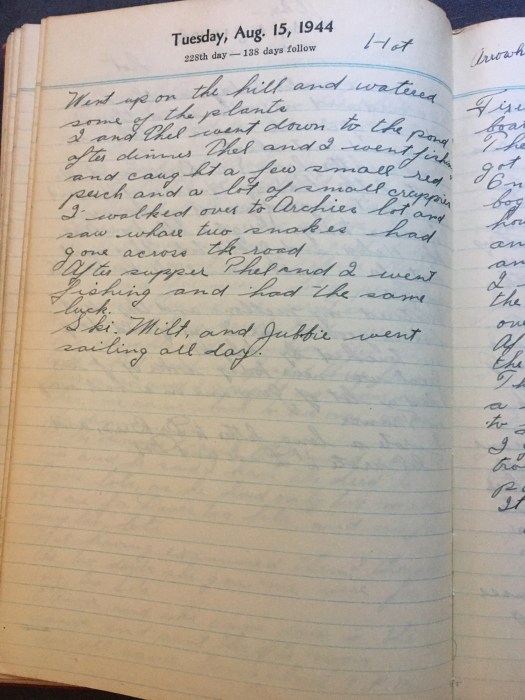 Tuesday, Aug. 15, 1944
228th day — 138 days follow
Hot
Went up on the hill and watered
some of the plants
I and Phel went down to the pond
after dinner Phel and I went fishin
and caught a few small red
perch and a lot of small crappies
I walked over to Archies lot and
saw whare two snakes had
gone across the road
After supper Phel and I went
fishing and had the same
luck.
Ski. Milt, and Jubbie went
sailing all day.
Arrowh
Fire
boat
The
got
6 n
bog
hou
an
an
I
the
ove
Af
the
T
a
to
I g
tro
po
It